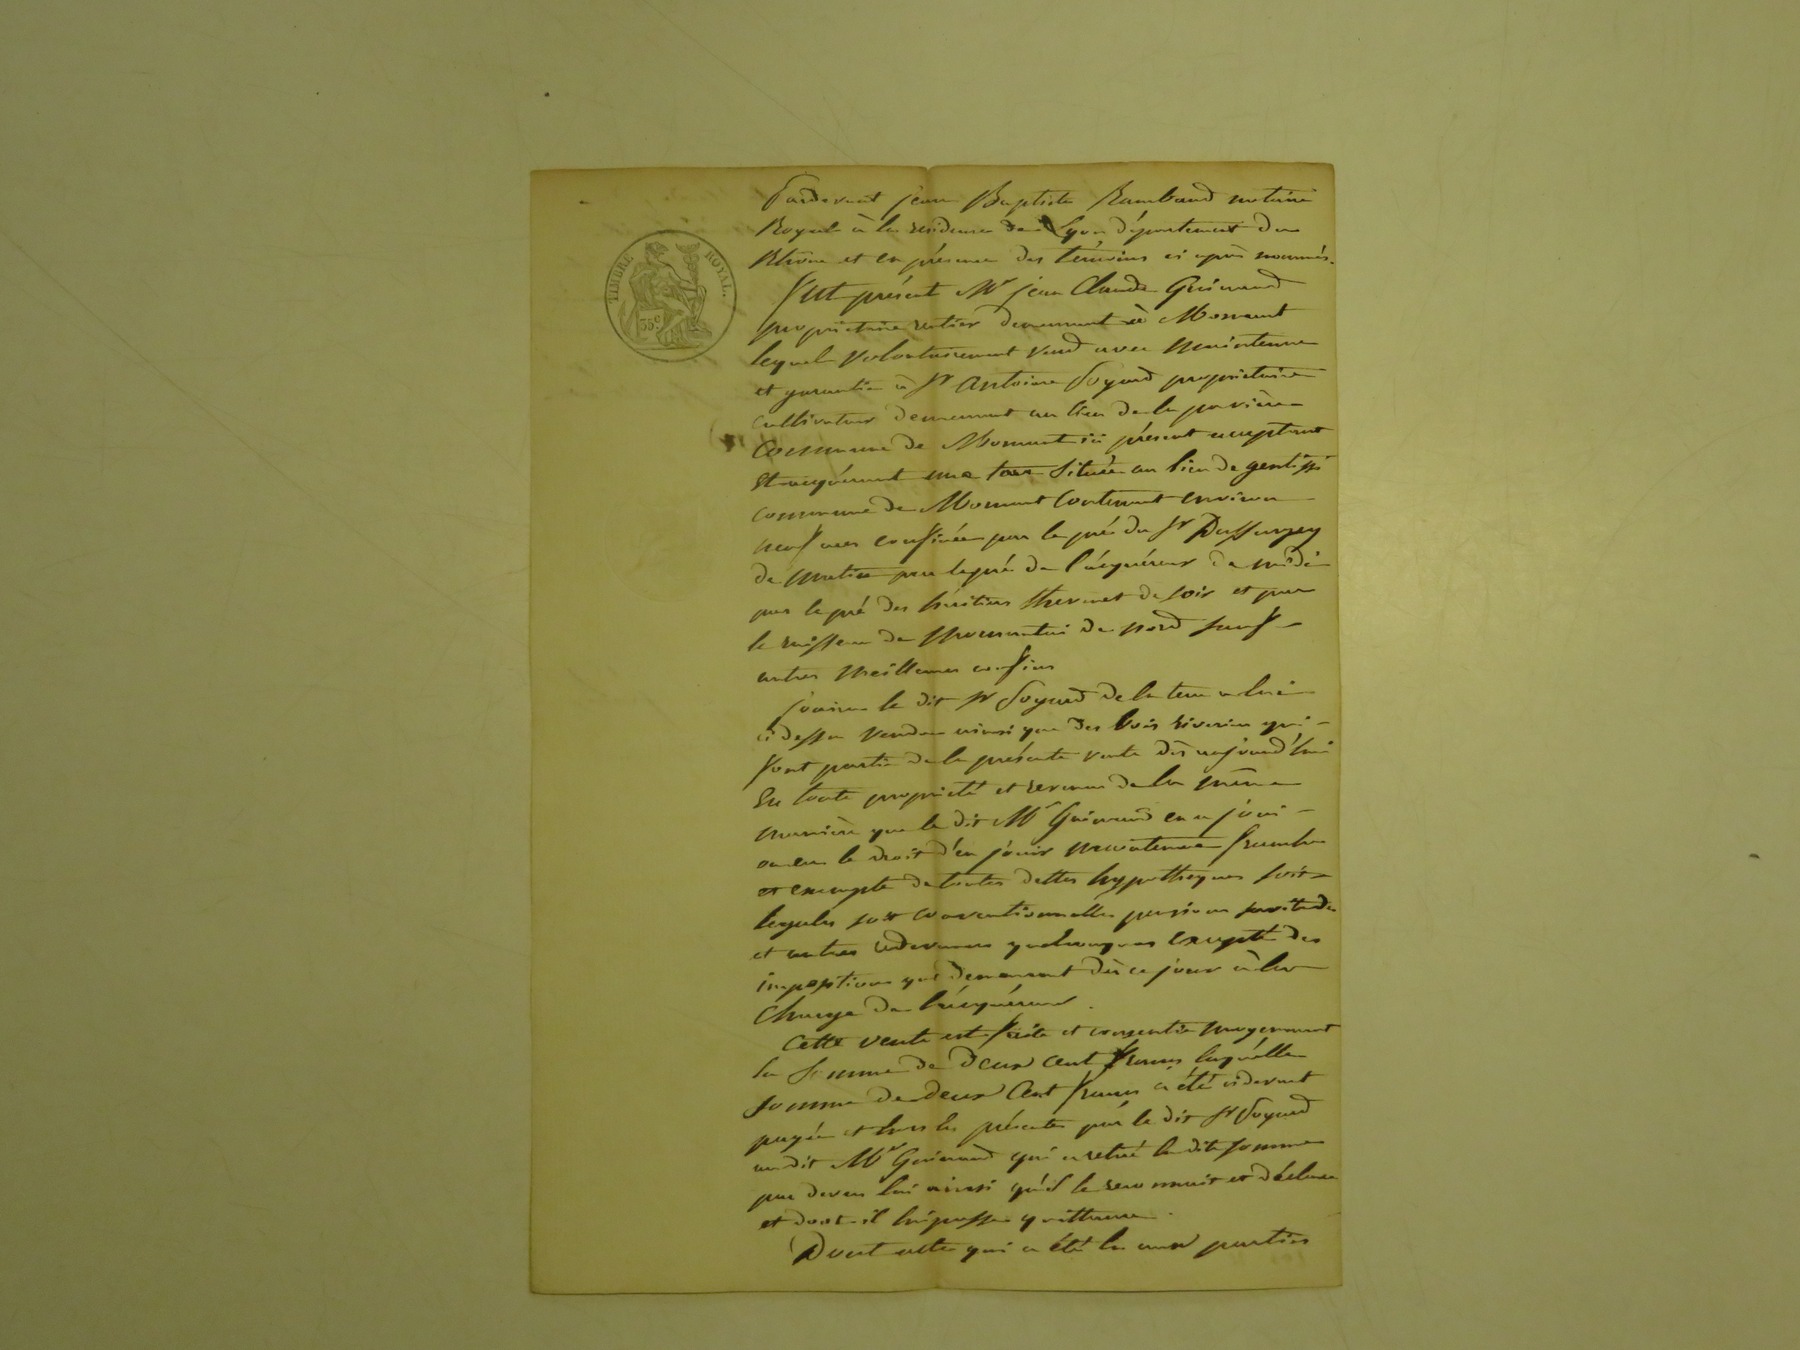 TIMBRE ROYAL.
35c.
Pardevant jean Baptiste Rambaud notaire
Royal à la residence de Lyon département du
Rhône et en présence des témoins ci après nommés.
fut présent Mr jean Claude Guinand
propriétaire rentier demeurant à Mornant
lequel volontairement vend avec maintenue
et garantie à Sr antoine Goyard propriétaire
cultivateur demeurant au lieu de la
Commune de Mornant ici présent acceptant
et acquérant une terre située au lieu de
commune de Mornant contenant environ
neuf ares confinée par le pré du Sr
de matin par le pré de l'acquéreur de midi
par le pré des héritiers thevenet de soir et par
le ruisseau de de nord sauf
autres meilleurs confins
jouira le dit Sr Goyard de la terre a lui
ci dessu vendue ainsi que des bois riverin qui
font partie de la présente vente dès aujourd'hui
En toute propriété et revenu de la même
manière que le dit Mr Guinand en a joui
ou eu le droit d'en jouir maintenue franche
et exempte de toutes dettes hypothèques soit
legales soit conventionnelles pension servitudes
et autres redevances quelconques excepté des
impositions qui demeurent dès ce jour à la
Charge de l'acquéreur.
Cette vente est faite et consentie moyennant
la Somme de deux cent francs laquelle
somme de deux Cent francs a été cidevant
payée et hors les présentes par le dit Sr Goyard
au dit Mr Guinand qui a retiré la dite somme
par devers lui ainsi qu'il le reconnait et déclare
et dont il lui passe quittance.
Dont acte qui a été lu aux parties